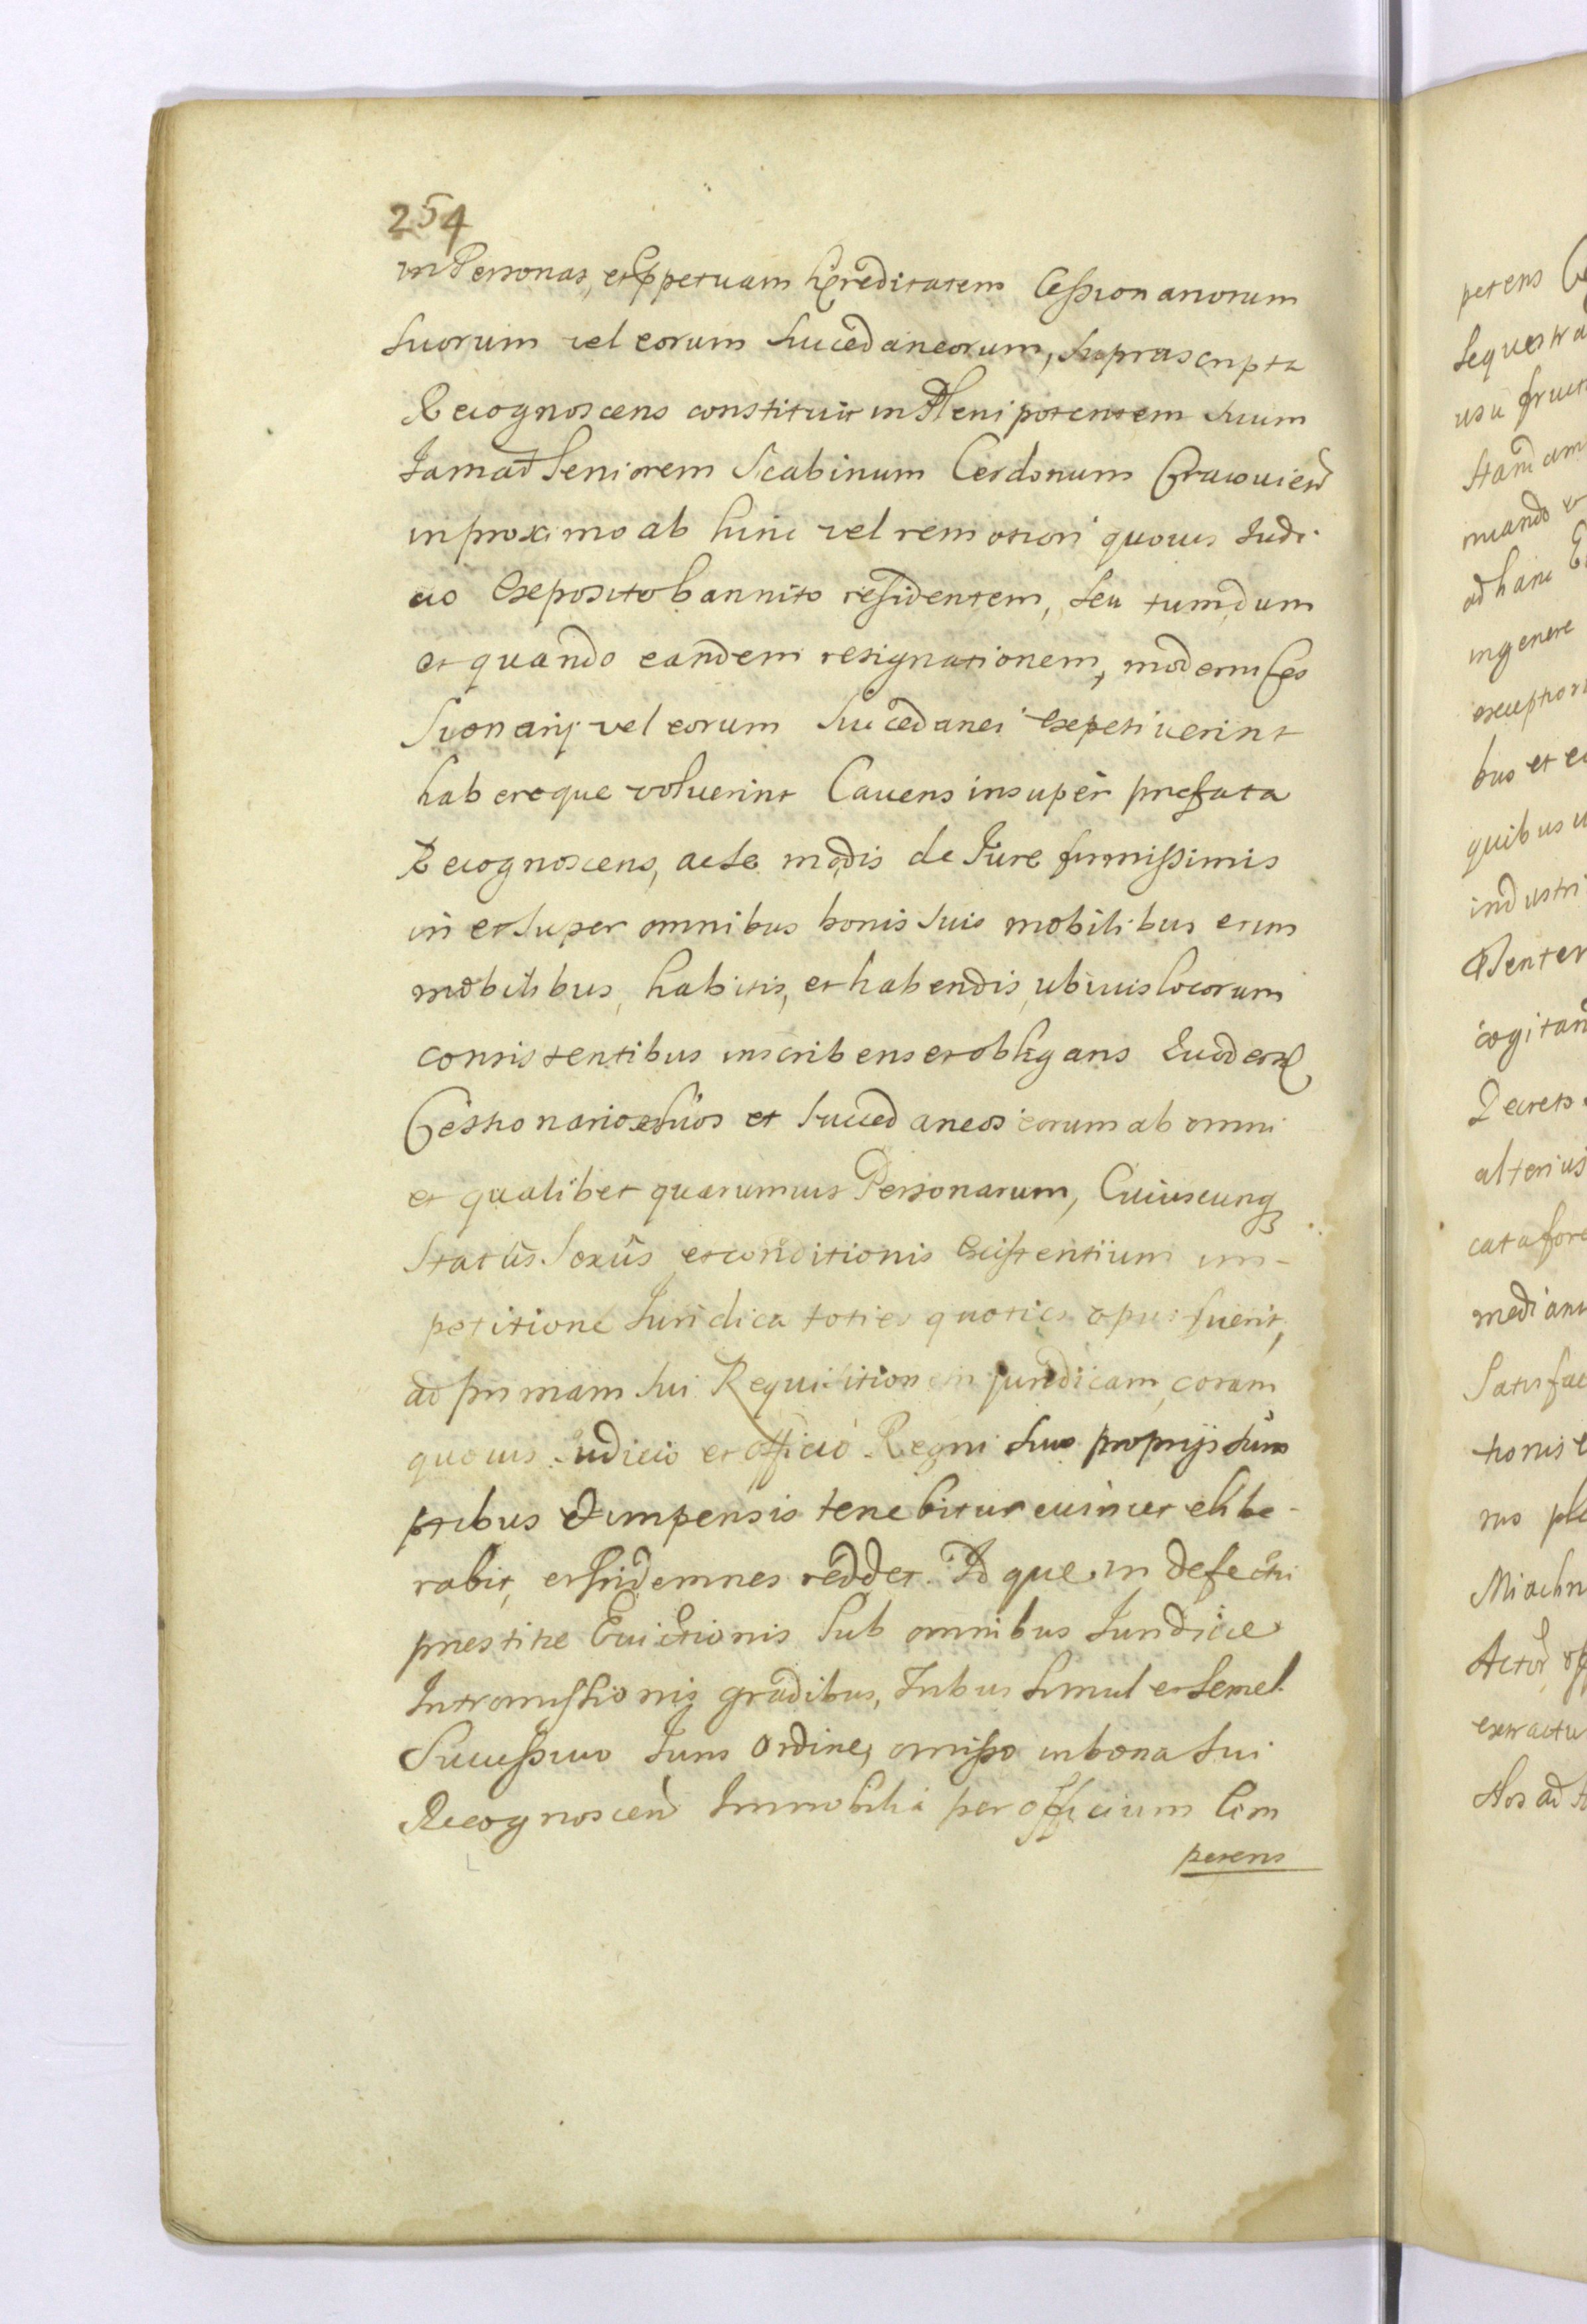 254
in Personas, et ppetuam hæreditatem Cessionariorum
suorum vel eorum Sucedaneorum, Suprascripta
Recognoscens constituit in Plenipotentem suum
Famat̃ Seniorem Scabinum Cerdonum Cracovieñ
in proximo ab hinc vel remotiori quovis Iudi
cio Exposito bannito residentem, seu tum, dum
et quando eandem resignationem, moderni Ces
sionarij vel eorum Sucedanei Expetiverint
habereque voluerint Cavens insuper præfata
Recognoscens, ac se modis de Iure firmissimis
in et super omnibus bonis suis mobilibus et im
mobilibus, habitis, et habendis, ubivis locorum
consistentibus inscribens et obligans
Cessionarios suos et Succedaneos eorum ab omni
et qualibet quarumvis Personarum, Cuiuscunq
Status Sexûs et conditionis Existentium im-
petitione Iuridica toties quoties opus fuerit,
ad primam sui Requisitionem juridicam, coram
quovis Iudicio et officio Regni suis proprijs sum
ptibus & impensis tenebitur evincet elibe-
rabit, et Indemnes reddet. Ad que in defectu
præstitæ Evictionis Sub omnibus Iuridicæ
Intromissionis gradibus, Tribus simul et semel
Successivo Iuris Ordine, omisso in bona sui
Recognosceñ Immobilia per officium Com
petens
petens
Sequestra
usu fruct
ad hanc
in genere
exception
bus et e
quibus u
industri
cogitan
Decreto
alterius
cata fore
median
Satisfac
tionis e